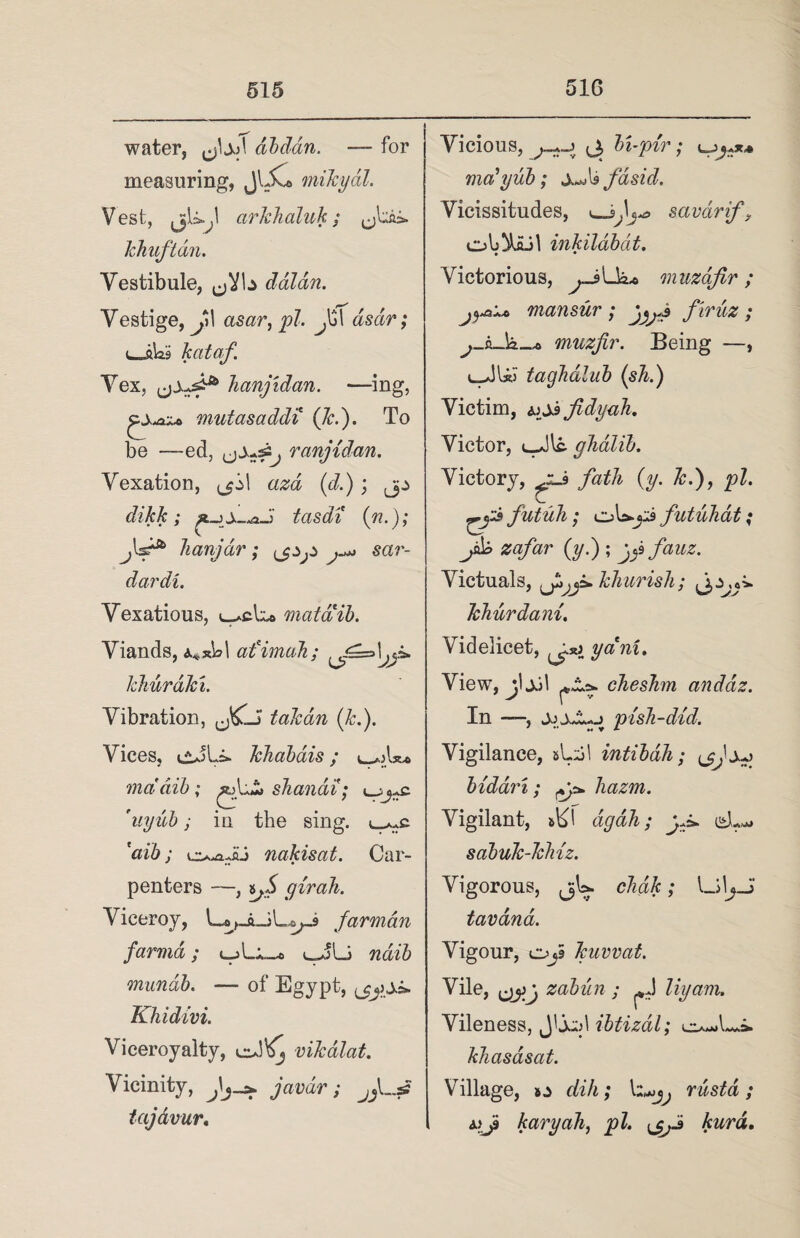 515
516
water, آبدان ábdán. — for
measuring, مکیال mikyál.
Vest, ارخالق arkhaluk; خفتان
khuftán.
Vestibule, دالان dálán.
Vestige, اثر asar, pl. آثار ásár;
قطف kataf.
Vex, هنجیدن hanjídan. —ing,
متصدع mutasaddi‘ (k.). To
be —ed, رنجیدن ranjídan.
Vexation, اذی azá (d.); دق
dikk; تصدیع tasdí‘ (n.);
هنجار hanjár; سر دردی sar-
dardí.
Vexatious, متاعب matá‘ib.
Viands, اطعمه at‘imah; خوراکی
khúrákí.
Vibration, تکان takán (k.).
Vices, خبائث khabáis; معایب
ma‘áib; شنائع shanáï‘;  عیوب
‘uyúb; in the sing. عیب
‘aib; نقیصت nakísat. Car-
penters —, گیره gírah.
Viceroy, فرمانفرما farmán
farmá; نائب مناب náib
munáb. — of Egypt, خدیوی
Khidívi.
Viceroyalty, وکالت vikálat.
Vicinity, جوار javár; تجاور
tajávur.
Vicious, بی پیر bí-pír; معیوب
ma‘yúb; فاسد fásid.
Vicissitudes, صوارف savárif,
انقلابات inkilábát.
Victorious, مظافر muzáfir;
منصور mansúr; فیروز fírúz;
مظفر muzfir. Being —,
تغالب taghálub (sh.)
Victim, فدیه fidyah.
Victor, غالب ghálib.
Victory, فتح fath (y. k.), pl.
فتوح futúh; فتوحات futúhát;
ظفر zafar (y.); فوز fauz.
Victuals, خورش khurish; خوردنی
khúrdaní.
Videlicet, یعنی ya‘ní.
View, چشم انداز cheshm andáz.
In —, پیش دید písh-díd.
Vigilance, انتباه intibáh; بیداری
bídárí; حزم hazm.
Vigilant, آگاه ágáh; سبک خیز
sabuk-khíz.
Vigorous, چاق chák; توانا
tavána.
Vigour, قوت kuvvat.
Vile, زبون zabún; لئیم liyam.
Vileness, ابتذال ibtizál; خساست
khasásat.
Village, ده dih; روستا rústá;
قریه karyah, pl. قری kurá.